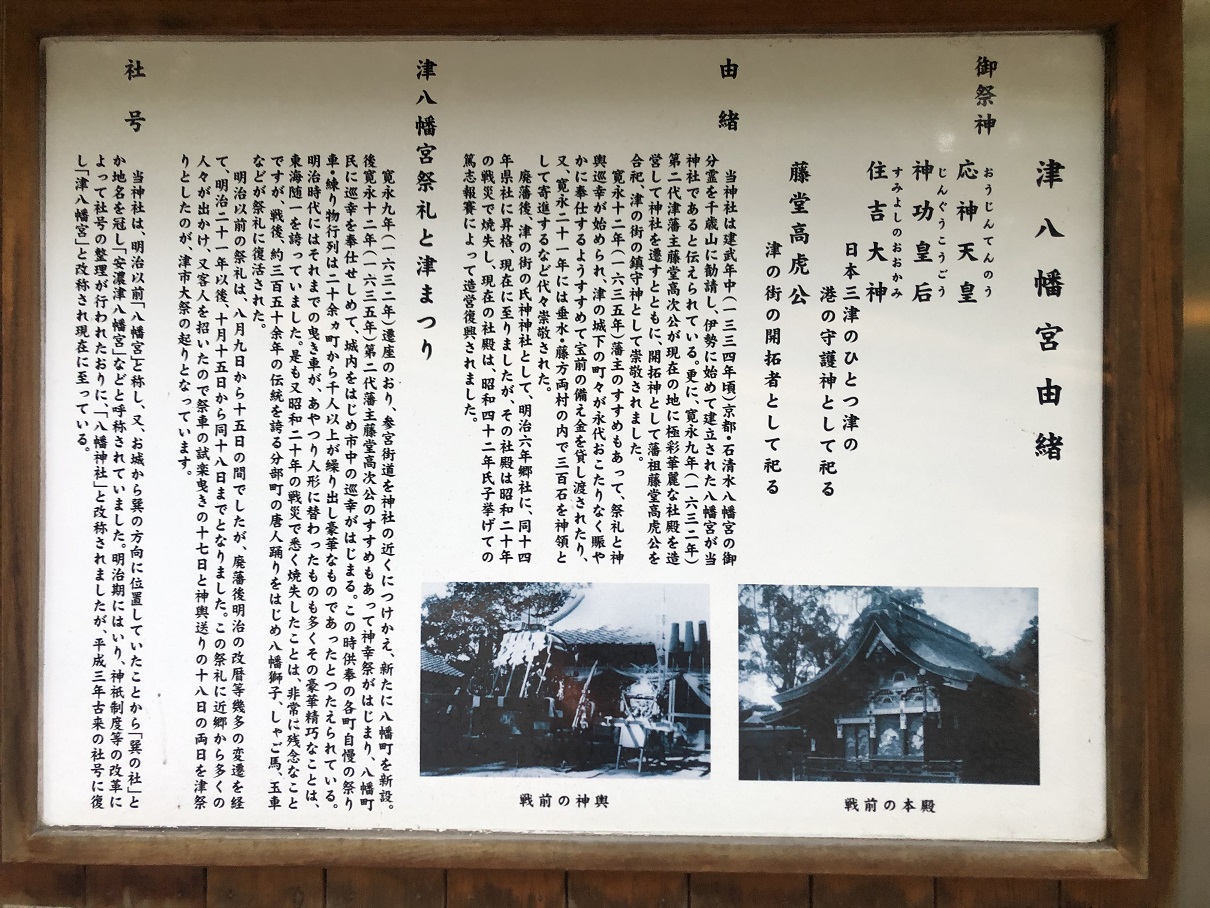 津八幡宮由緒
御祭神
おうじんてんのう
応神天皇
じんぐうこうごう
神功皇后
すみよしのおおかみ
住吉大神
日本三津のひとつ津の
港の守護神として祀る
藤堂高虎公
津の街の開拓者として祀る
由緒
当神社は建武年中(一三三四年頃)京都・石清水八幡宮の御
分霊を千歳山に勧請し、伊勢に始めて建立された八幡宮が当
神社であると伝えられている。更に、寛永九年(一六三二年)
第二代津藩主藤堂高次公が現在の地に極彩華麗な社殿を造
営して神社を遷すとともに、開拓神として藩祖藤堂高虎公を
合祀、津の街の鎮守神として崇敬されました。
寛永十二年(一六三五年)藩主のすすめもあって、祭礼と神
輿巡幸が始められ、津の城下の町々が永代おこたりなく賑や
かに奉仕するようすすめて宝前の備え金を貸し渡されたり、
又、寛永二十一年には垂水・藤方両村の内で三百石を神領と
して寄進するなど代々崇敬されました。
廃藩後、津の街の氏神神社として、明治六年郷社に、同十四
年県社に昇格、現在に至りましたが、その社殿は昭和二十年
の戦災で焼失し、現在の社殿は、昭和四十二年氏子挙げての
篤志報賽によって造営復興されました。
津八幡宮祭礼と津まつり
寛永九年(一六三二年)遷座のおり、参宮街道を神社の近くにつけかえ、新たに八幡町を新設。
後寛永十二年(一六三五年)第二代藩主藤堂高次公のすすめもあって神幸祭がはじまり、八幡町
民に巡幸を奉仕せしめて、城内をはじめ市中の巡幸がはじまる。この時供奉の各町自慢の祭り
車・練り物行列は二十余ヵ町から千人以上が繰り出し豪華なものであったとつたえられている。
明治時代にはそれまでの曳き車が、あやつり人形に替わったものも多くその豪華精巧なことは、
東海随一を誇っていました。是も又昭和二十年の戦災で悉く焼失したことは、非常に残念なこと
ですが、戦後、約三百五十余年の伝統を誇る分部町の唐人踊りをはじめ八幡獅子、しゃご馬、玉車
などが祭礼に復活された。
明治以前の祭礼は、八月九日から十五日の間でしたが、廃藩後明治の改暦等幾多の変遷を経
て、明治二十一年以後、十月十五日から同十八日までとなりました。この祭礼に近郷から多くの
人々が出かけ、又客人を招いたので祭車の試楽曳きの十七日と神輿送りの十八日の両日を津祭
りとしたのが、津市大祭の起りとなっています。
社号
当神社は、明治以前「八幡宮」と称し、又、お城から巽の方向に位置していたことから「巽の社」と
か地名を冠し「安濃津八幡宮」などと呼称されていました。明治期にはいり、神祇制度等の改革に
よって社号の整理が行われたおりに、「八幡神社」と改称されましたが、平成三年古来の社号に復
し「津八幡宮」と改称され現在に至っている。
戦前の本殿
戦前の神輿